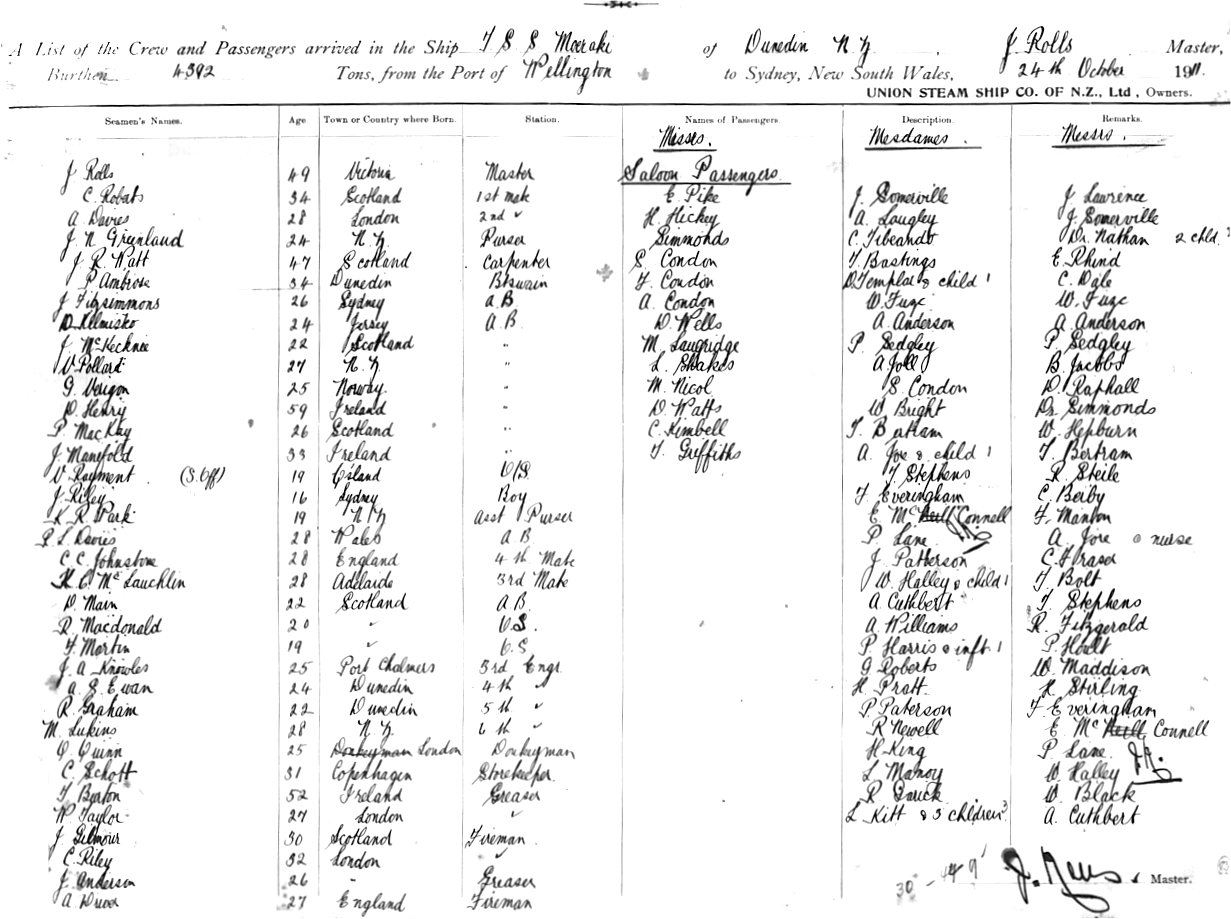 A List of the Crew and Passengers arrived in the Ship T S S Moeraki of Dunedin N Z, J Rolls Master,
Burthen 4392 Tons, from the Port of Wellington to Sydney, New South Wales, 24th October 1911.
UNION STEAM SHIP CO. OF N.Z., Ltd, Owners.
Seamen's Names. Age Town or Country where Born. Station. Names of Passengers. Description. Remarks.
Misses. Mesdames. Messrs.
J Rolls 49 Victoria Master Saloon Passengers
C. Robats 34 Scotland 1st Mate E. Pike J. Somerville J Lawrence
A Davies 28 London 2nd " H. Hickey A. Laugley J. Somerville
J. N Greenland 24 N. Z Purser Simmonds C. Tibeando Dr. Nathan 2 chld.
J. R. Watt 47 Scotland Carpenter S. Condon T Bastings E. Rhind
P Ambrose 34 Dunedin Btswain F. Condon D Templar & child 1 C. Dale
J Fitzsimmons 26 Sydney A.B A. Condon W. Fuge W. Fuge
24 Jersey A.B. D. Wells A. Anderson A. Anderson
J. McKechnee 22 Scotland " M. Laugridge P. Sedgley P. Sedgley
V Pollard 27 N. Z " L. Shakes A Joll B. Jacobs
G. Verigon 25 Norway " M. Nicol S. Condon D. Raphall
D. Henry 59 Ireland " D. Watts W. Bright Dr. Simmonds
P. MacKay 26 Scotland " C. Kimbell T. Batham W. Hepburn
J. Manifold 33 Ireland " T. Griffiths A. Jore & child 1 T. Bertram
V. Rayment (S. Off) 19 O/S. T. Stephens R. Steile
J. Riley 16 Sydney Boy T. Everingham C. Berby
K R Park 19 N Z Asst Purser E Mc Neill Connell F. Manton
P. L. Davies 28 Wales A B P. Lane A. Jore & nurse
C. C. Johnstone 28 England 4th Mate J. Patterson C. F. Fraser
H. C. McLauchlin 28 Adelaide 3rd Mate W. Halley & child 1 T. Bolt
D. Main 22 Scotland A B. A Cuthbert T. Stephens
R. Macdonald 20 " O.S. A Williams R. Fitzgerald
F. Martin 19 " O.S P. Harris & inft 1 P. Hoult
J. A. Knowles 25 Port Chalmers 3rd Engr. G. Roberts W. Maddison
A. S. Ewan 24 Dunedin 4th " H. Pratt H. Stirling
R. Graham 22 Dunedin 5th " P. Paterson F. Everingham
M. Lukins 28 N. Z. 6th " R Newell E. Mc Neill Connell
O Quinn 25 Donkeyman London Donkeyman H. King P. Lane
C. Schott 31 Copenhagen Storekeeper. L. Manoy W. Halley
T Byaton 52 Ireland Greaser R Darick W. Black
W Taylor 27 London " L Kitt & 3 children 3 A. Cuthbert
J Gilmour 30 Scotland Fireman
C. Riley 32 London "
J. Anderson 26 " Greaser
27 England Fireman
30 - 44 9' Master.